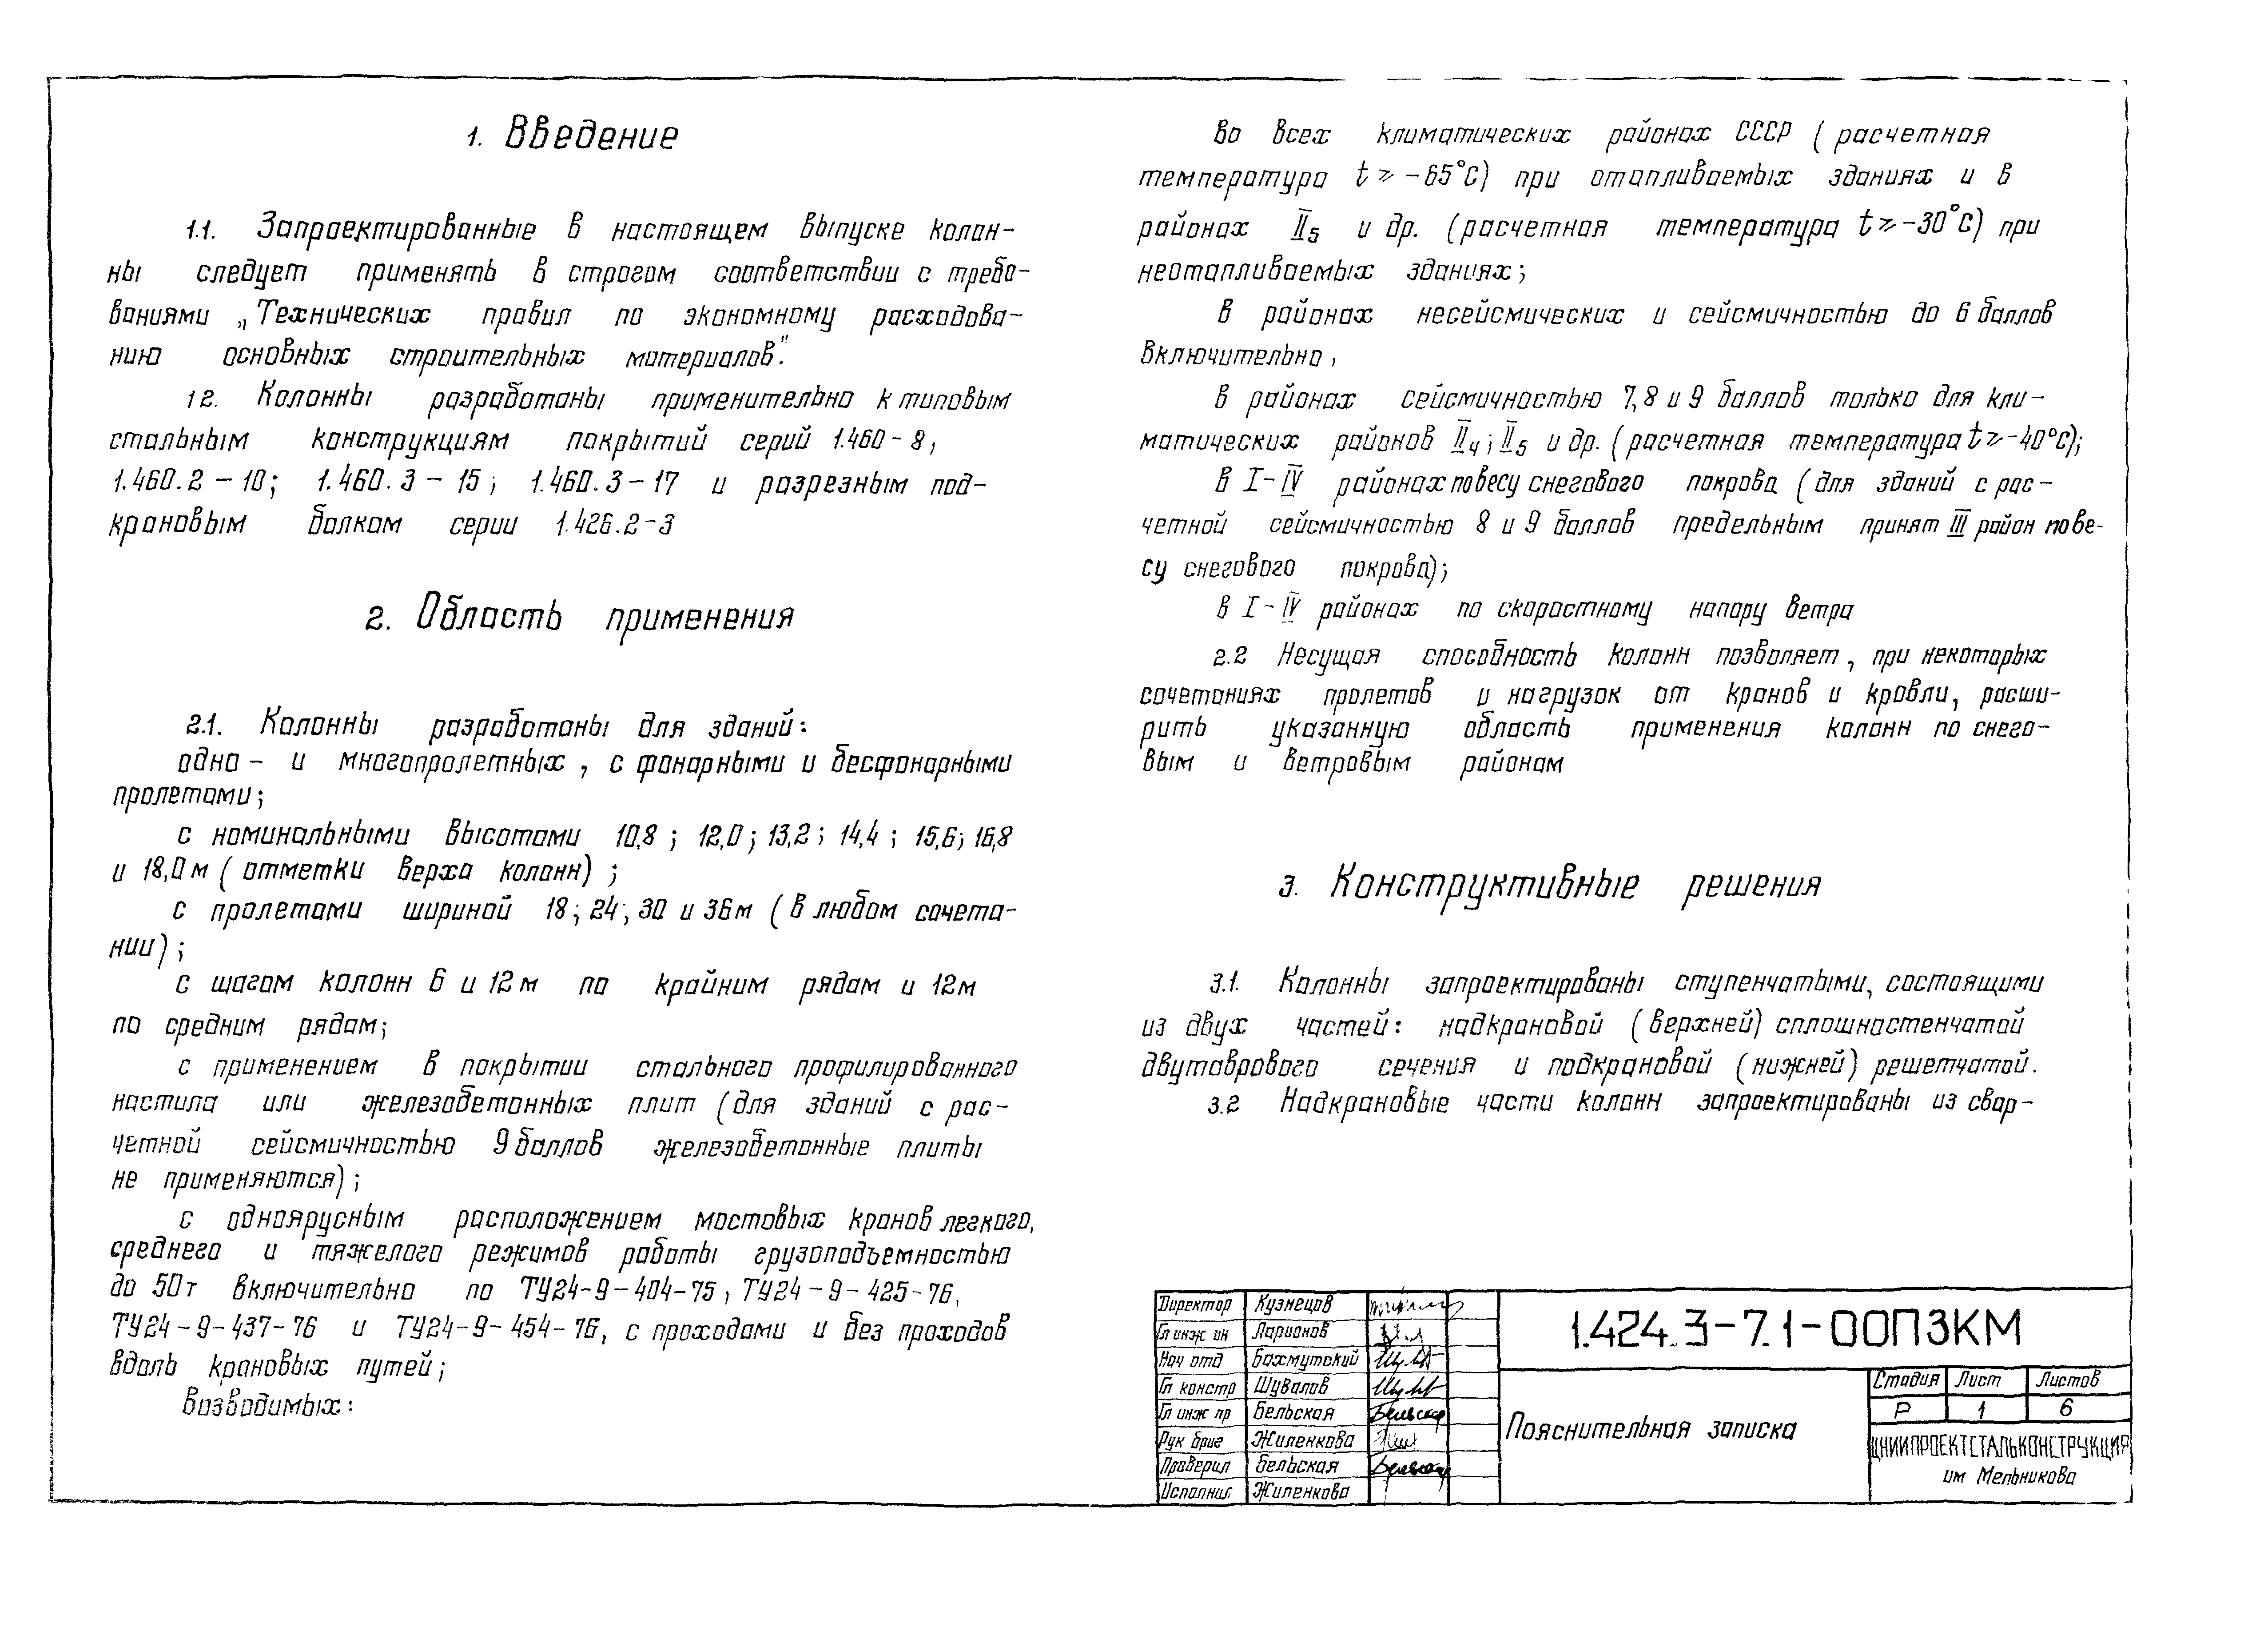 1. Введение
1.1. Запроектированные в настоящем выпуске колон-
ны следует применять в строгом соответствии с требо-
ваниями „Технических правил по экономному расходова-
нию основных строительных материалов".
12. Колонны разработаны применительно к типовым
стальным конструкциям покрытий серий 1.460-8,
1.460.2-10; 1.460.3-15; 1.460.3-17 и разрезным под-
крановым балкам серии 1.426.2-3
2. Область применения
2.1. Колонны разработаны для зданий:
одно- и многопролетных, с фонарными и бесфонарными
пролетами;
с номинальными высотами 10,8; 12,0; 13,2; 14,4; 15,6; 16,8
и 18,0 м (отметки верха колонн);
с пролетами шириной 18; 24; 30 и 36 м (в любом сочета-
нии);
с шагом колонн 6 и 12 м по крайним рядам и 12 м
по средним рядам;
с применением в покрытии стального профилированного
настила или железобетонных плит (для зданий с рас-
четной сейсмичностью 9 баллов железобетонные плиты
не применяются);
с одноярусным расположением мостовых кранов легкого,
среднего и тяжелого режимов работы грузоподъемностью
до 50т включительно по ТУ24-9-404-75, ТУ24-9-425-76,
ТУ24-9-437-76 и ТУ24-9-454-76, с проходами и без проходов
вдоль крановых путей;
возводимых:
во всех климатических районах СССР (расчетная
температура t ⩾ -65°С) при отапливаемых зданиях и в
районах II₅ и др. (расчетная температура t ⩾ -30°С) при
неотапливаемых зданиях;
в районах несейсмических и сейсмичностью до 6 баллов
включительно,
в районах сейсмичностью 7,8 и 9 баллов только для кли-
матических районов II₄; II₅ и др. (расчетная температура t ⩾ -40°С);
в I-IV районах по весу снегового покрова (для зданий с рас-
четной сейсмичностью 8 и 9 баллов предельным принят III район по ве-
су снегового покрова);
в I-IV районах по скоростному напору ветра
2.2 Несущая способность колонн позволяет, при некоторых
сочетаниях пролетов и нагрузок от кранов и кровли, расши-
рить указанную область применения колонн по снего-
вым и ветровым районам
3. Конструктивные решения
3.1. Колонны запроектированы ступенчатыми, состоящими
из двух частей: надкрановой (верхней) сплошностенчатой
двутаврового сечения и подкрановой (нижней) решетчатой.
3.2 Надкрановые части колонн запроектированы из свар-
Директор Кузнецов
Гл инж ин Ларионов
Нач отд Бахмутский
Гл констр Шувалов
Гл инж пр Бельская
Рук бриг Жиленкова
Проверил Бельская
Исполнил Жиленкова
1.424.3-7.1-00ПЗКМ
Пояснительная записка
Стадия Лист Листов
Р 1 6
ЦНИИПРОЕКТСТАЛЬКОНСТРУКЦИЯ
им Мельникова